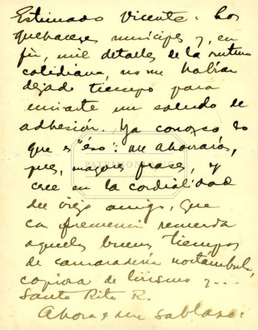 Estimado Vicente: Los
quehaceres munícipes y, en
fin, mil detalles de la rutina
cotidiana, no me habían
dejado tiempo para
enviarte un saludo de
adhesión. Ya conozco lo
que es "éso": me ahorrarás,
pues, mayores frases, y
cree en la cordialidad
del viejo amigo, que
con remembranza
aquellos buenos tiempos
de camaradería noctámbula,
copiosa de lirismo y...
Santa Rita R.
Ahora un sablazo: